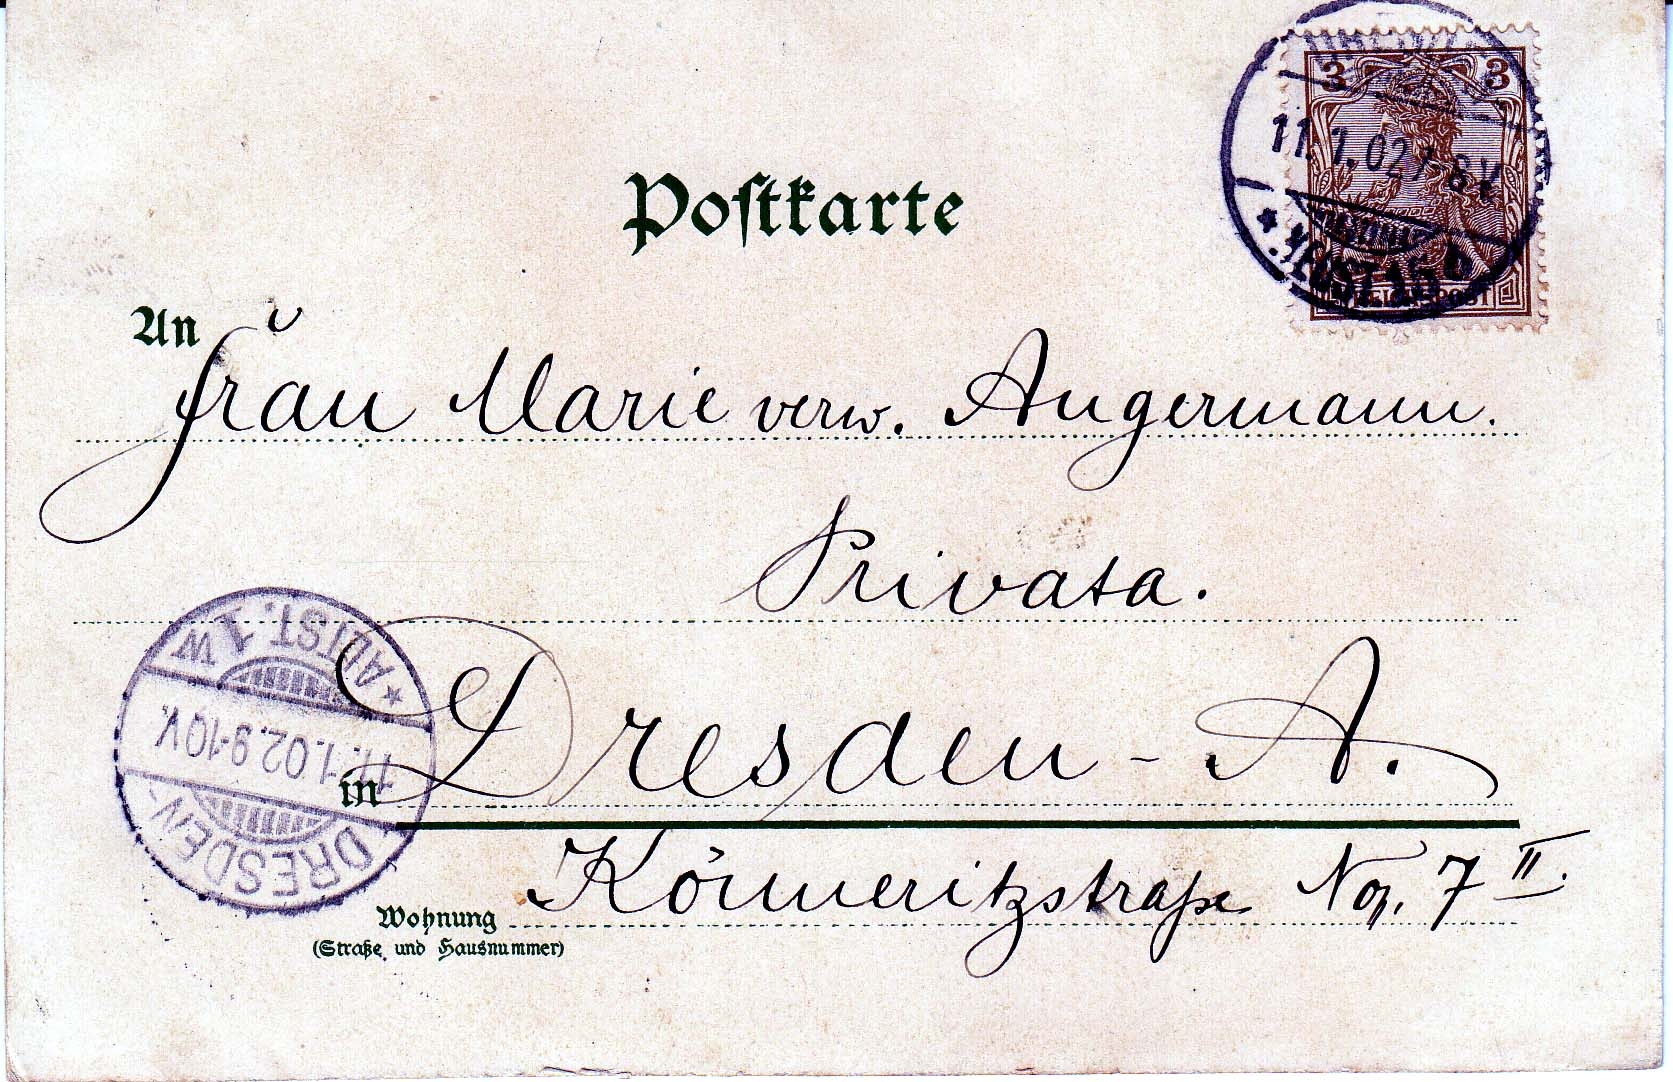 3 3
11.1.02.7-8V
* NEUSTADT
REICHSPOST
Postkarte
An
Frau Marie verw. Angermann.
Privata.
* ALTST. 1 W
11.1.02.9-10V.
DRESDEN-
in Dresden - A.
Könneritzstraße No. 7 II.
Wohnung
(Straße und Hausnummer)